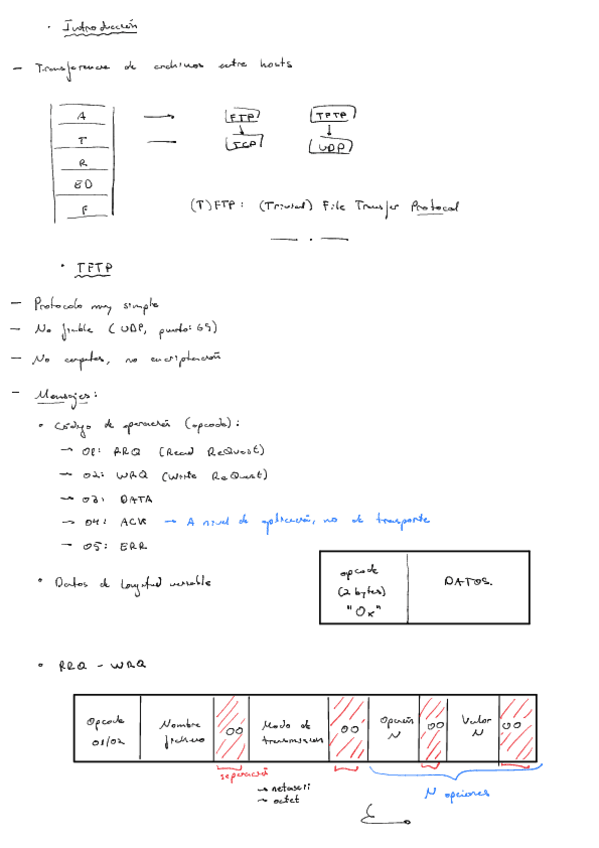 · Introducción
- Transferencia de archivos entre hosts
A → FTP TFTP
T — TCP UDP
R
ED
F
(T)FTP: (Trivial) File Transfer Protocol
· TFTP
- Protocolo muy simple
- No fiable (UDP, puerto: 69)
- No carpetas, no encriptación
- Mensajes:
· Código de operación (opcode):
→ 01: RRQ (Read ReQuest)
→ 02: WRQ (Write ReQuest)
→ 03: DATA
→ 04: ACK → A nivel de aplicación, no de transporte
→ 05: ERR
· Datos de longitud variable
opcode
(2 bytes)
"0x"
DATOS.
· RRQ - WRQ
Opcode
01/02
Nombre
fichero
00
Modo de
transmision
00
Opción
N
00
Valor
N
00
separación
→ netascii
→ octet
N opciones